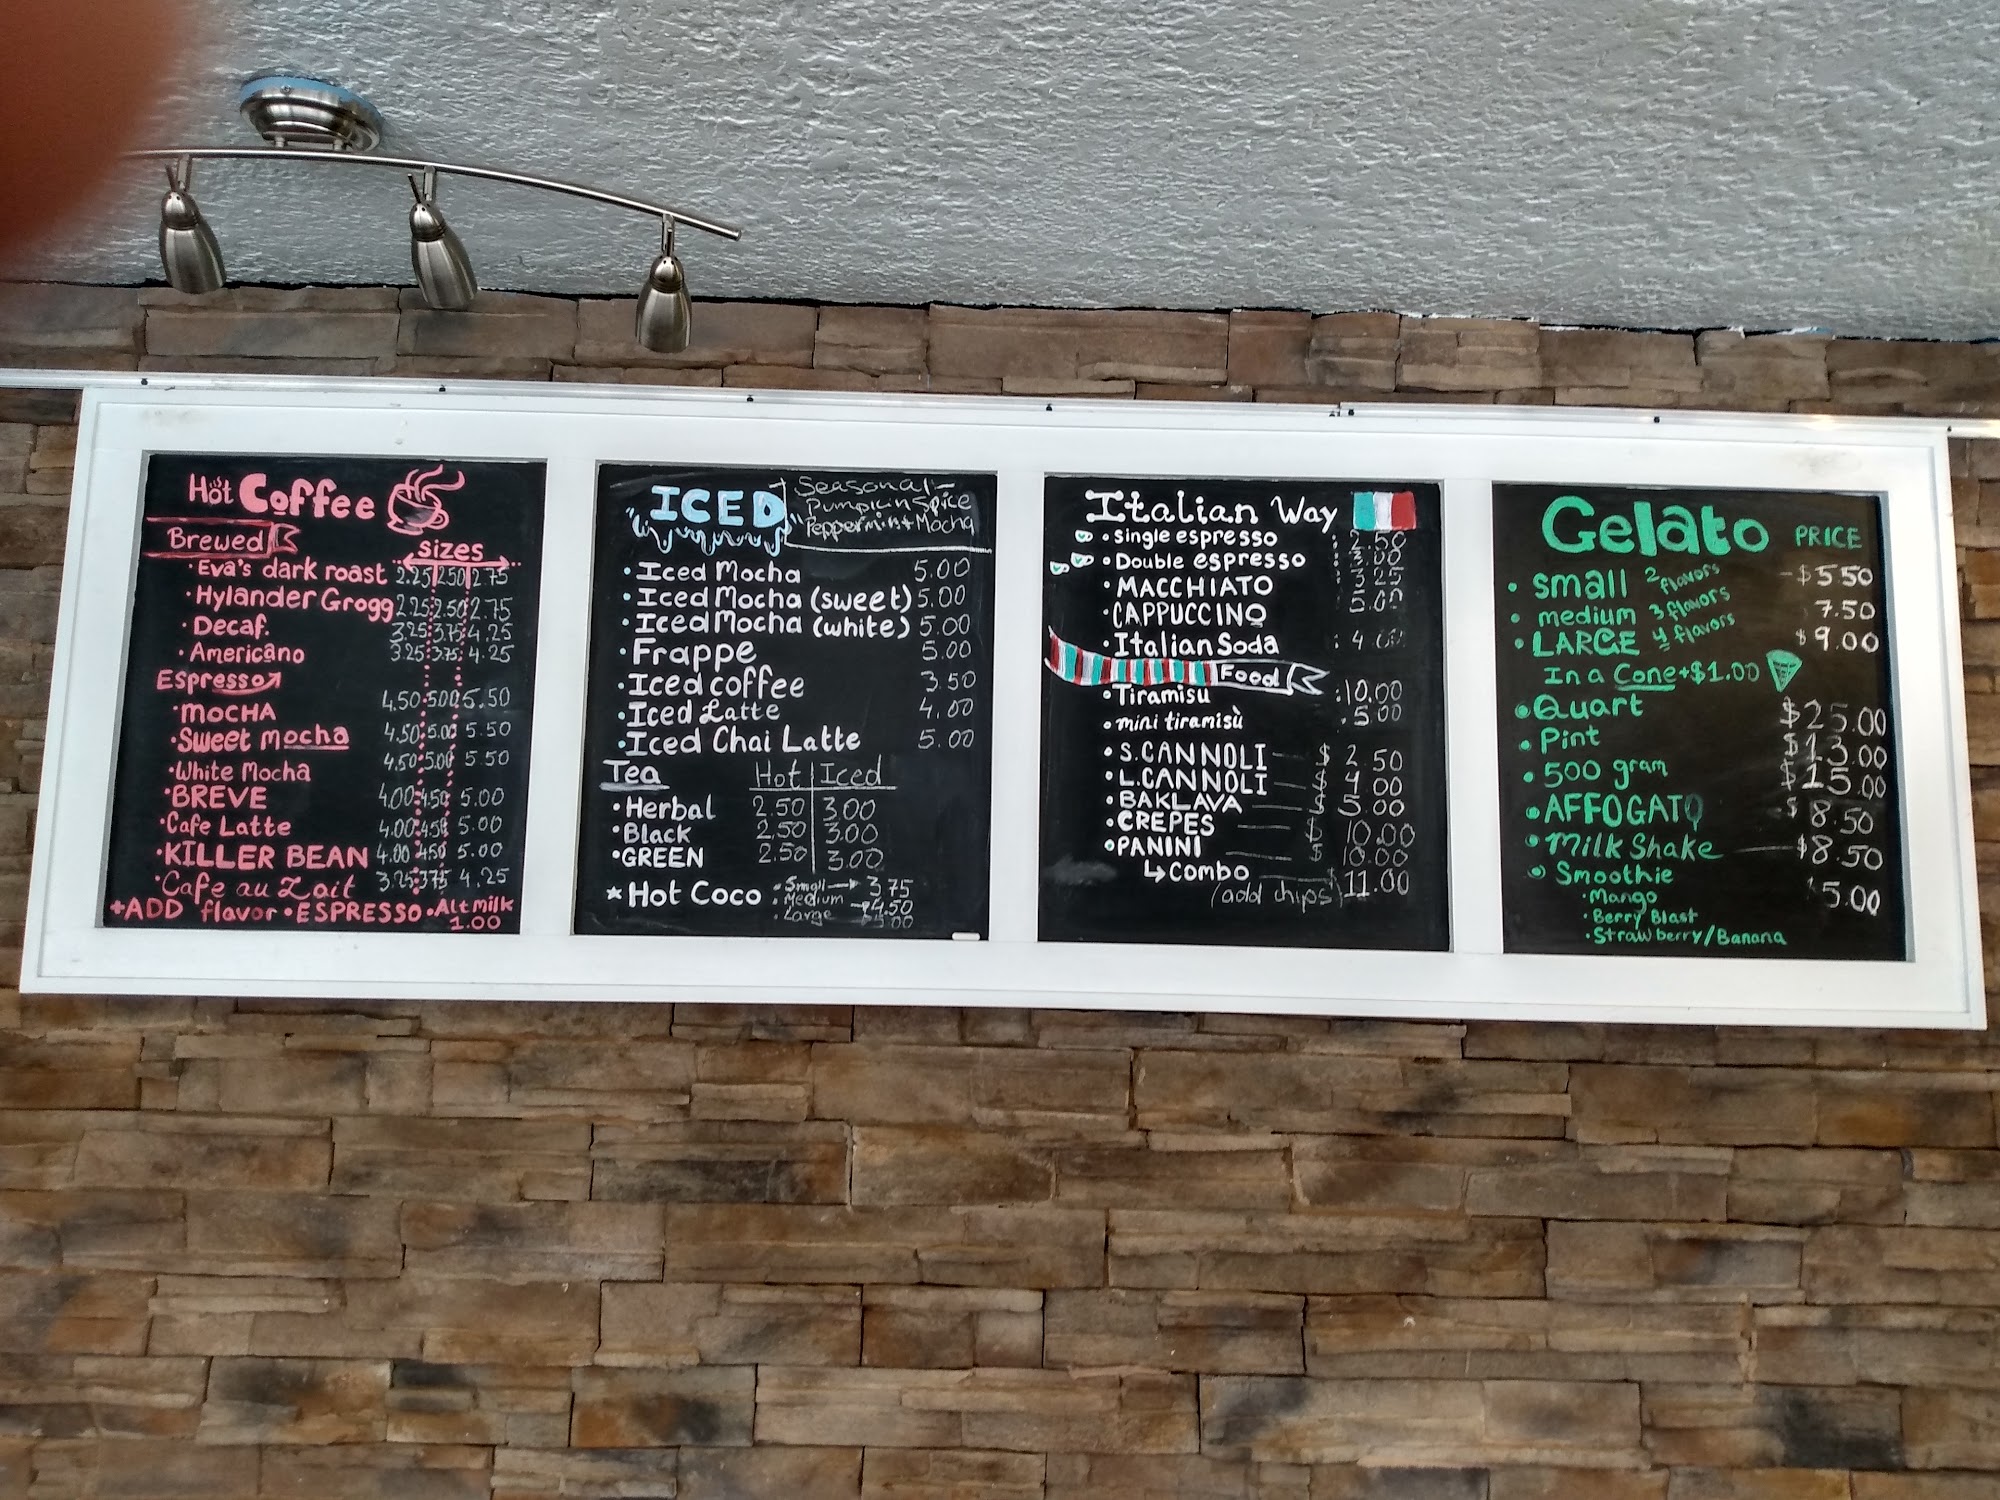 Hot Coffee
Brewed
sizes
• Eva's dark roast 2.25 2.50 2.75
• Hylander Grogg 2.25 2.50 2.75
• Decaf. 3.25 3.75 4.25
• Americano 3.25 3.75 4.25
Espresso
• MOCHA 4.50 5.00 5.50
• Sweet Mocha 4.50 5.00 5.50
• White Mocha 4.50 5.00 5.50
• BREVE 4.00 4.50 5.00
• Cafe Latte 4.00 4.50 5.00
• KILLER BEAN 4.00 4.50 5.00
• Cafe au Lait 3.25 3.75 4.25
+ADD flavor • ESPRESSO • Alt milk
1.00
ICED
Seasonal-
Pumpkin Spice
Peppermint Mocha
• Iced Mocha 5.00
• Iced Mocha (sweet) 5.00
• Iced Mocha (white) 5.00
• Frappe 5.00
• Iced coffee 3.50
• Iced Latte 4.00
• Iced Chai Latte 5.00
Tea Hot Iced
• Herbal 2.50 3.00
• Black 2.50 3.00
• GREEN 2.50 3.00
★ Hot Coco • Small 3.75
• Medium 4.50
• Large
Italian Way
• single espresso 2.50
• Double espresso 3.00
• MACCHIATO 3.25
• CAPPUCCINO 5.00
• Italian Soda 4.00
Food
• Tiramisu 10.00
• mini tiramisù 5.00
• S. CANNOLI $ 2.50
• L. CANNOLI $ 4.00
• BAKLAVA $ 5.00
• CREPES $ 10.00
• PANINI $ 10.00
↳ Combo $ 11.00
(add chips)
Gelato PRICE
• small 2 flavors - $5.50
• medium 3 flavors 7.50
• LARGE 4 flavors $9.00
In a Cone +$1.00
• Quart $25.00
• Pint $13.00
• 500 gram $15.00
• AFFOGATO $8.50
• Milk Shake $8.50
• Smoothie 5.00
• Mango
• Berry Blast
• Strawberry/Banana